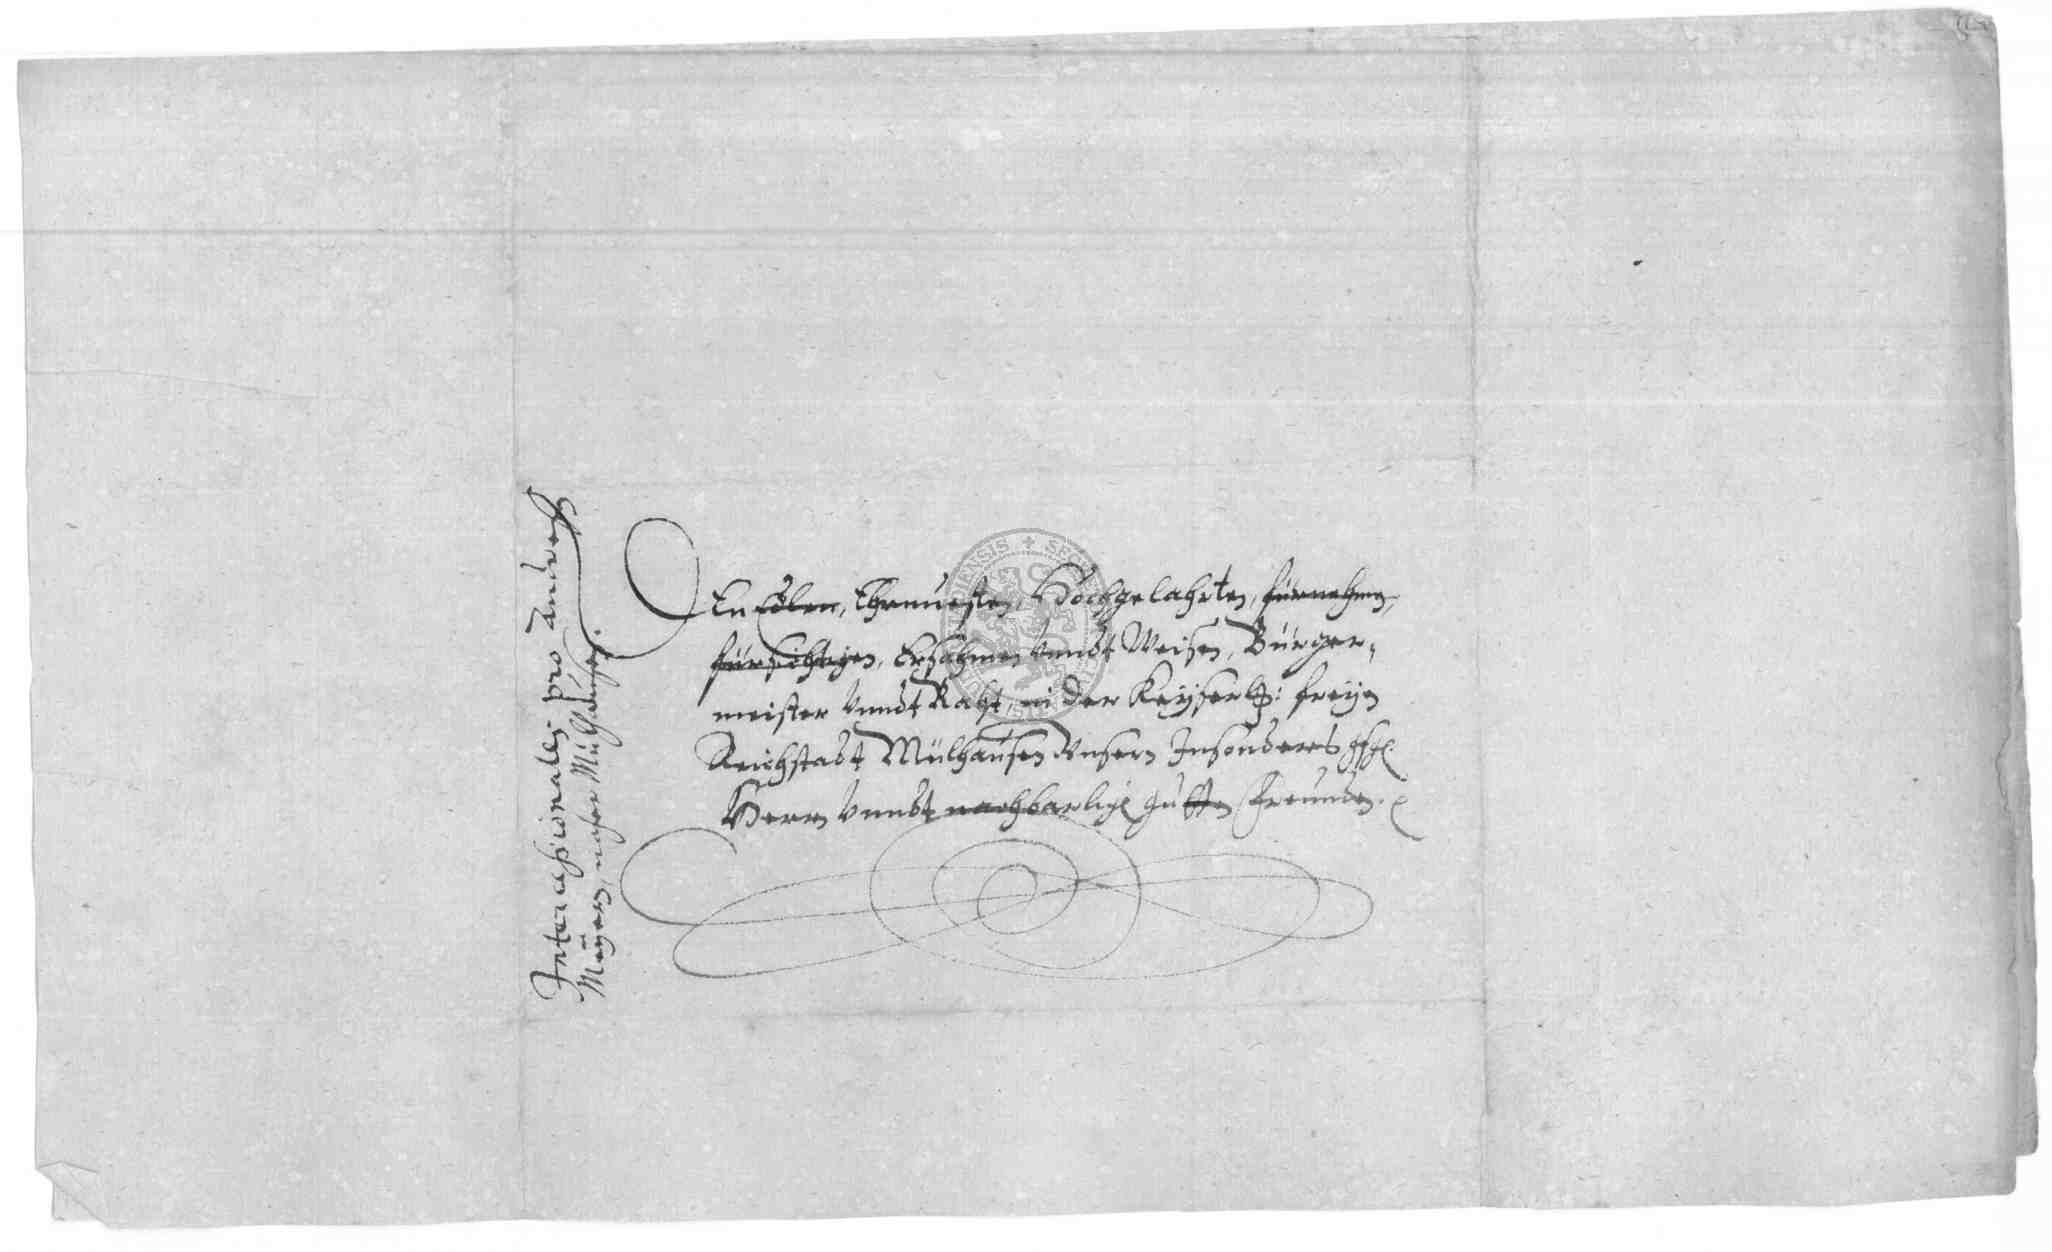 Intercessionales pro Andreß
Meÿern, nacher Mülhausen.
Den Edlen, Ehrnuesten, Hochgelahrten, fürnehmen,
fürsichtigen, Ersahmen Vnndt Weisen, Bürger-
meister Vnndt Raht, in der Keyserl: freyen
Reichstadt Mülhausen Vnsern Insonders
Herrn Vnndt nachbarlich gutten Freunden.